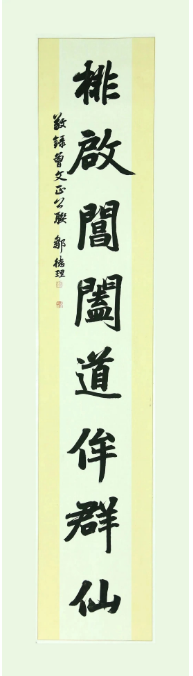 排啟閶闔道侔群仙
敬録曾文正公聯 鄒德理